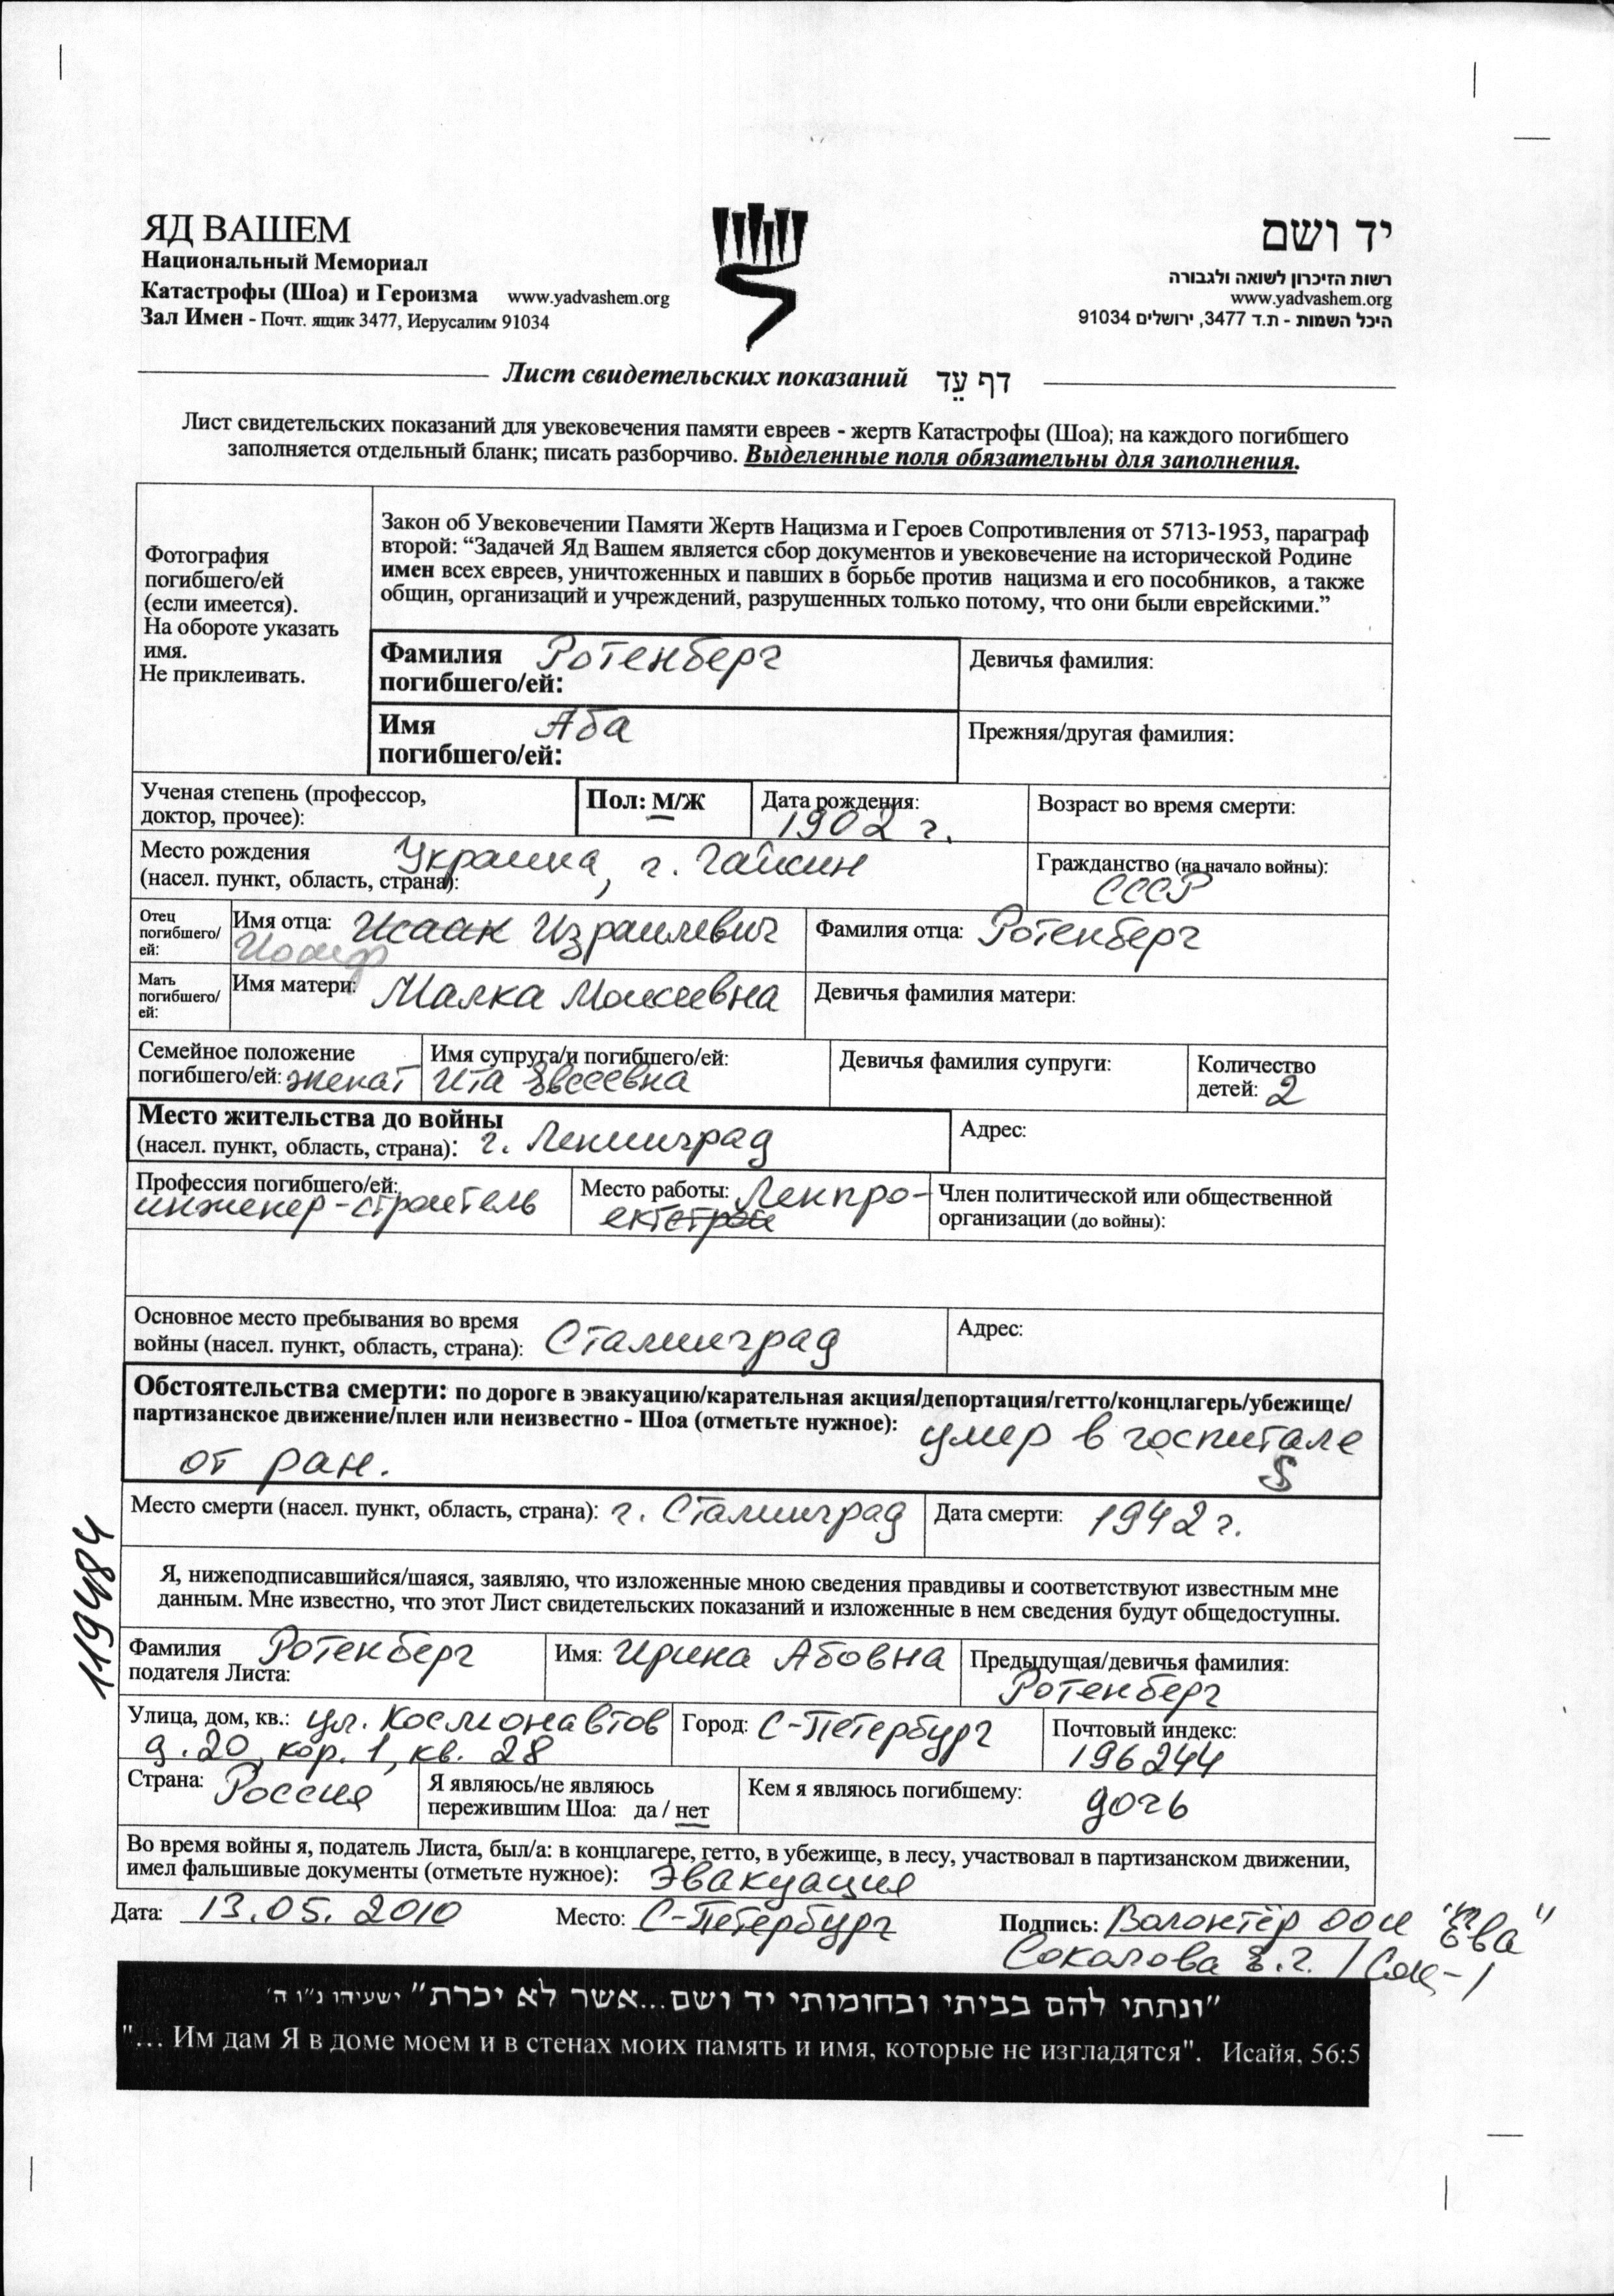 ЯД ВАШЕМ
Национальный Мемориал
Катастрофы (Шоа) и Героизма www.yadvashem.org
Зал Имен - Почт. ящик 3477, Иерусалим 91034
יד ושם
רשות הזיכרון לשואה ולגבורה
www.yadvashem.org
היכל השמות - ת.ד 3477, ירושלים 91034
Лист свидетельских показаний דף עֵד
Лист свидетельских показаний для увековечения памяти евреев - жертв Катастрофы (Шоа); на каждого погибшего
заполняется отдельный бланк; писать разборчиво. Выделенные поля обязательны для заполнения.
Фотография
погибшего/ей
(если имеется).
На обороте указать
имя.
Не приклеивать.
Закон об Увековечении Памяти Жертв Нацизма и Героев Сопротивления от 5713-1953, параграф
второй: “Задачей Яд Вашем является сбор документов и увековечение на исторической Родине
имен всех евреев, уничтоженных и павших в борьбе против нацизма и его пособников, а также
общин, организаций и учреждений, разрушенных только потому, что они были еврейскими.”
Фамилия Ротенберг
погибшего/ей:
Девичья фамилия:
Имя Аба
погибшего/ей:
Прежняя/другая фамилия:
Ученая степень (профессор,
доктор, прочее):
Пол: М/Ж
Дата рождения:
1902 г.
Возраст во время смерти:
Место рождения Украина, г. Гайсин
(насел. пункт, область, страна):
Гражданство (на начало войны):
СССР
Отец
погибшего/
ей:
Имя отца: Исаак Израилевич
Иосиф
Фамилия отца: Ротенберг
Мать
погибшего/
ей:
Имя матери: Малка Моисеевна
Девичья фамилия матери:
Семейное положение
погибшего/ей: женат
Имя супруга/и погибшего/ей:
Ита Евсеевна
Девичья фамилия супруги:
Количество
детей: 2
Место жительства до войны
(насел. пункт, область, страна): г. Ленинград
Адрес:
Профессия погибшего/ей:
инженер-строитель
Место работы: Ленпро-
ектстрой
Член политической или общественной
организации (до войны):
Основное место пребывания во время
войны (насел. пункт, область, страна): Сталинград
Адрес:
Обстоятельства смерти: по дороге в эвакуацию/карательная акция/депортация/гетто/концлагерь/убежище/
партизанское движение/плен или неизвестно - Шоа (отметьте нужное): умер в госпитале
от ран.
Место смерти (насел. пункт, область, страна): г. Сталинград
Дата смерти: 1942 г.
119484
Я, нижеподписавшийся/шаяся, заявляю, что изложенные мною сведения правдивы и соответствуют известным мне
данным. Мне известно, что этот Лист свидетельских показаний и изложенные в нем сведения будут общедоступны.
Фамилия Ротенберг
подателя Листа:
Имя: Ирина Абовна
Предыдущая/девичья фамилия:
Ротенберг
Улица, дом, кв.: ул. Космонавтов
д. 20, кор. 1, кв. 28
Город: С-Петербург
Почтовый индекс:
196244
Страна: Россия
Я являюсь/не являюсь
пережившим Шоа: да / нет
Кем я являюсь погибшему: дочь
Во время войны я, податель Листа, был/а: в концлагере, гетто, в убежище, в лесу, участвовал в партизанском движении,
имел фальшивые документы (отметьте нужное): Эвакуация
Дата: 13.05.2010 Место: С-Петербург Подпись: Волонтёр ООИ "Ева"
Соколова Е.Г.
"ונתתי להם בביתי ובחומותי יד ושם...אשר לא יכרת" ישעיהו נ"ו ה'
"... Им дам Я в доме моем и в стенах моих память и имя, которые не изгладятся". Исайя, 56:5